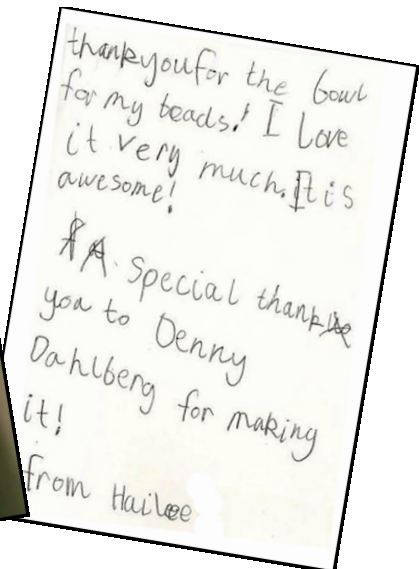 thankyoufor the bowl
for my beads! I Love
it very much. It is
awesome!
A special thank
you to Denny
Dahlberg for making
it!
from Hailee